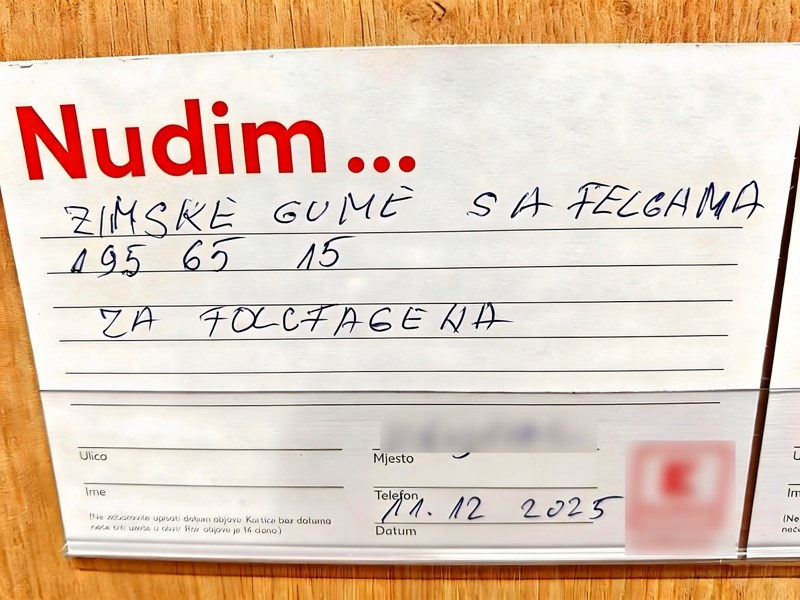 Nudim...
ZIMSKE GUME SA FELGAMA
195 65 15
ZA FOLCFAGENA
Ulica
Mjesto
Ime
Telefon
11.12 2025
(Ne zaboravite upisati datum objave. Kartice bez datuma
neće biti uzete u obzir. Rok objave je 14 dana.)
Datum